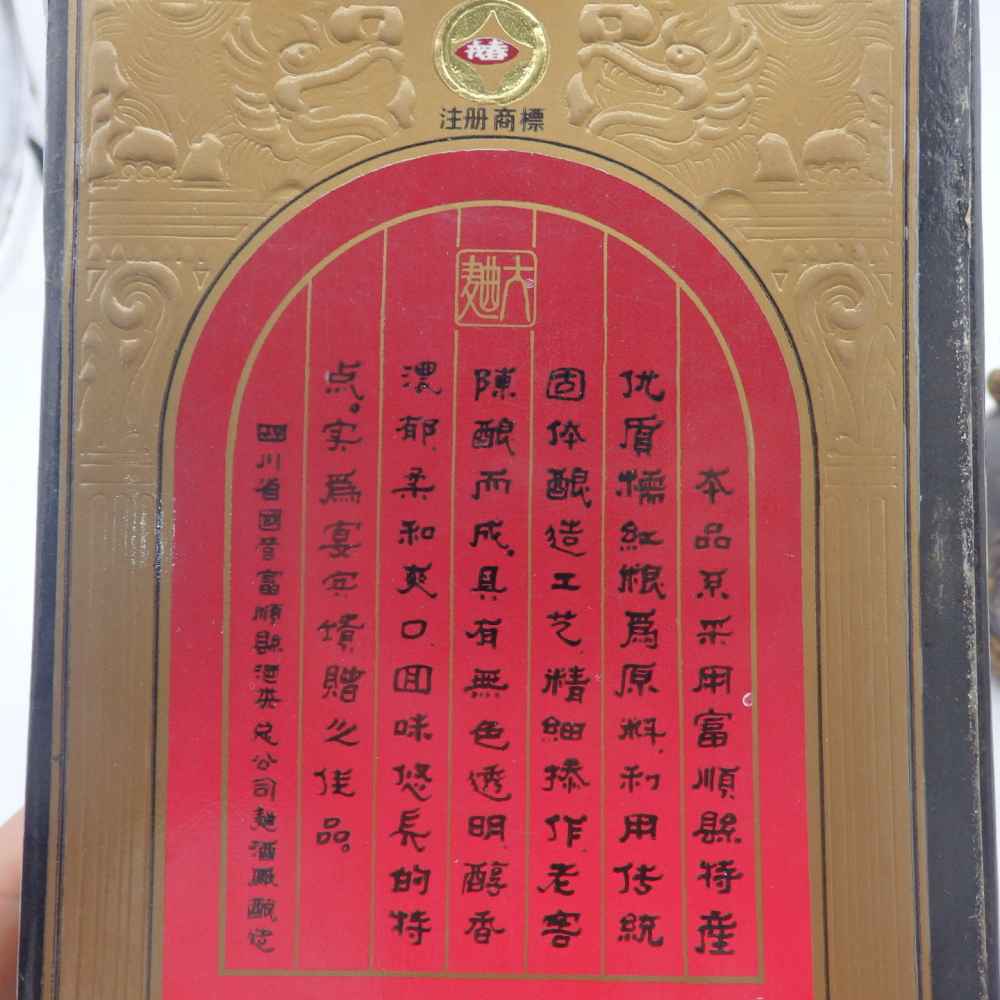 注册商標
大麯
本品系采用富順縣特産
优质糯紅粮爲原料,利用传統
固体酿造工艺精細操作老窖
陳酿而成,具有無色透明醇香
濃郁柔和爽口回味悠長的特
点。实爲宴宾馈贈之佳品。
四川省國营富順縣酒类总公司麯酒厰酿造